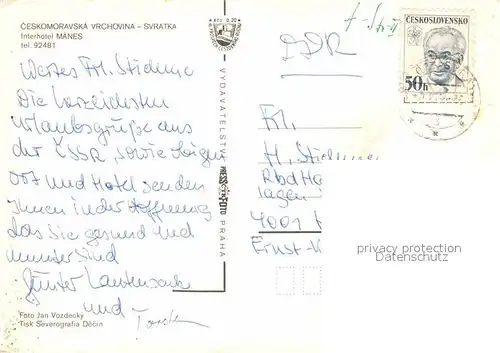 ČESKOMORAVSKÁ VRCHOVINA – SVRATKA
Interhotel MÁNES
tel. 92481
Wertes Frl. Stidune
Die herzlichsten
Urlaubsgrüße aus
der ČSSR, sowie obigen
Ort und Hotel senden
Ihnen in der Hoffnung
das Sie gesund und
munter sind
Günter
und
Foto Jan Vozdecký
Tisk Severografia Děčín
VYDAVATELSTVÍ PRESSFOTO PRAHA
DDR
ČESKOSLOVENSKO
50h
Frl.
H. Stidune
Rbd Ha
lagen
4001
Ernst-
privacy protection
© ansichtskarten-center.de